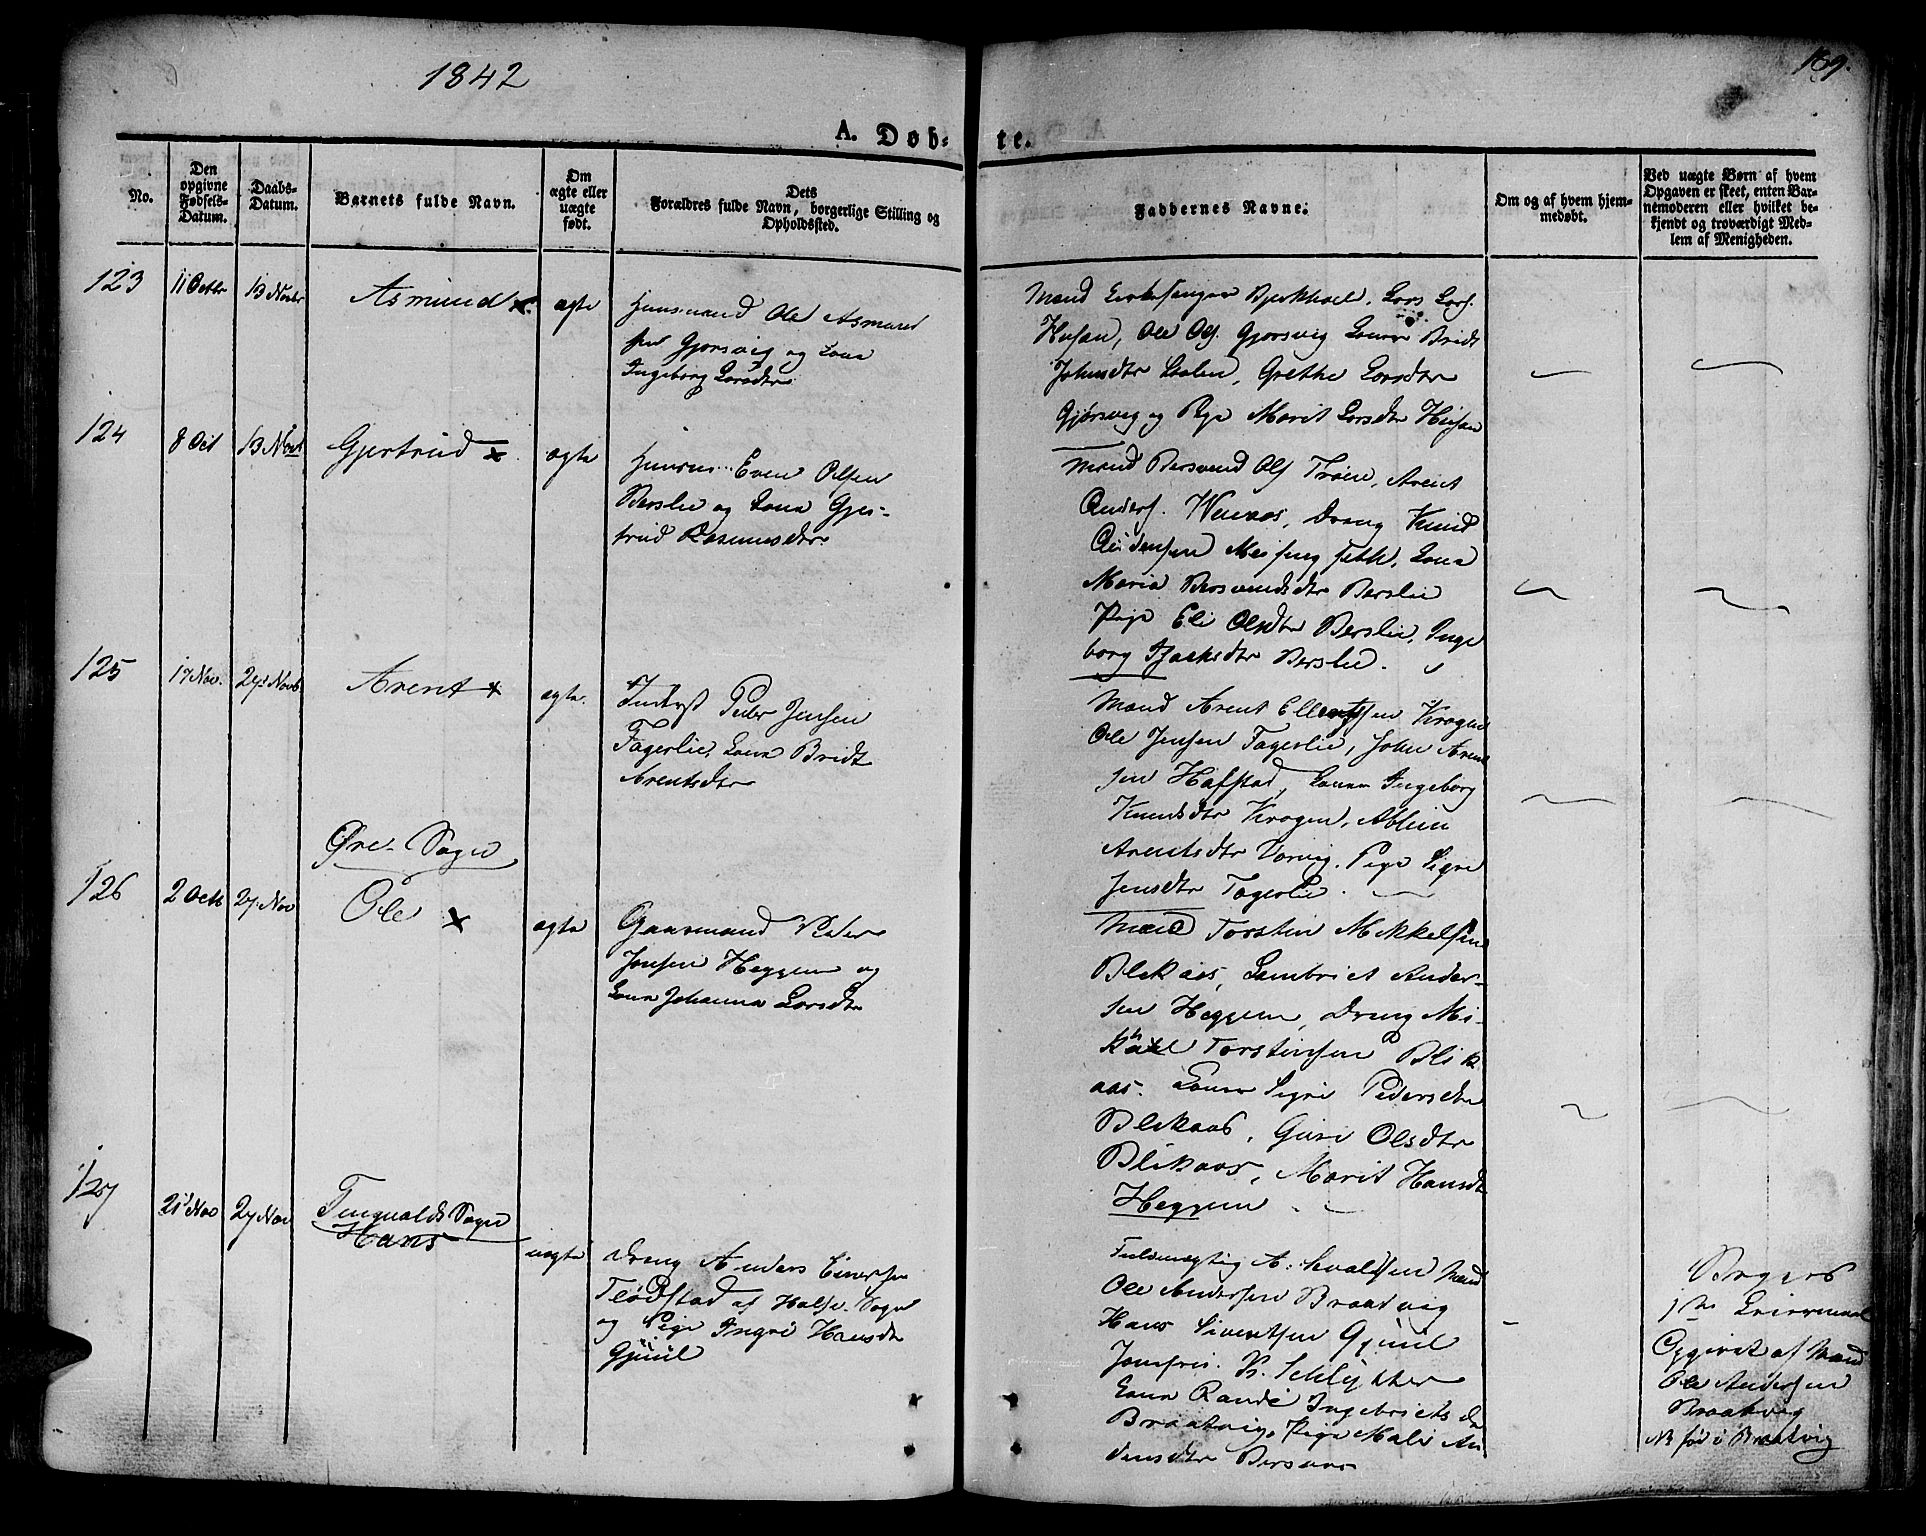 1842
189.
A. Døb-
te.
No.
Den
opgivne
Fødsels-
Datum.
Daabs-
Datum.
Barnets fulde Navn.
Om
ægte eller
uægte
født.
Dets
Forældres fulde Navn, borgerlige Stilling og
Opholdssted.
Faddernes Navne.
Om og af hvem hjem-
medøbt.
Ved uægte Børn af hvem
Opgaven er skeet, enten Bar-
nemoderen eller hvilket be-
kjendt og troværdigt Med-
lem af Menigheden.
123
11 Octbr
13 Novbr
Asmund x
ægte
Huusmand Ole Asmund
sen Gjørsvig og Kona
Ingeborg Larsdtr
Mand Bjerkhoel, Lars Lars.
Husan, Ole Ols. Gjørsvig Koner Bridt
Johnsdtr Grethe Larsdtr
Gjørsvig og Pige Marit Larsdtr Husan
124
8 Oct
13 Novbr
Gjertrud x
ægte
Even Olsen
Berslie og Kona Gjer-
trud Rasmusdtr
Mand Bersvend Ols Trøen, Arent
Anders. Dreng Knud
Kona
Maria Bersvendsdtr Berslie
Pige Eli Olsdtr Berslie, Inge
borg Berslie.
125
17 Nov.
27 Novb
Arent x
ægte.
Inderst Peder Jensen
Fagerlie, Kona Bridt
Arentsdtr
Mand Arent Ellentsen Krogen
Ole Jensen Fagerlie, John Arent
sen Hafstad, Koner Ingeborg
Knudsdtr Krogen,
Arentsdtr Pige Sigre
Jensdtr Fagerlie
Øre-Sogn
126
2 Octb
27 Nov
Ole x
ægte
Gaarmand Peder
Jonsen Heggem og
Kona Johanna Larsdtr
Mand Torstin Mikkelsen
Blekaas, Lambriet Ander-
sen Heggem, Dreng Mi-
kael Torstensen Blik
aas. Koner Sigri Pedersdtr
Blikaas, Guri Olsdtr
Blikaas, Marit Hansdtr
Heggem
127
21 Nov
27 Nov
Tingvolds Sogn
Hans
uægte
Dreng Anders Einersen
Flødstad af Halse-Sogn
og Pige Ingri Hansdtr
Gjüül
Fuldmægtig A. Mand
Ole Andersen Braatvig
Hans Sivertsen Gjüül
Jomfrue K. Schlytter
Kona Randi Ingebrietsdtr
Braatvig, Pige Mali An
densdtr
Begges
1ste Leiermaal
Opgivet af Mand
Ole Andersen
Braatvig
NB fød i Braatvig